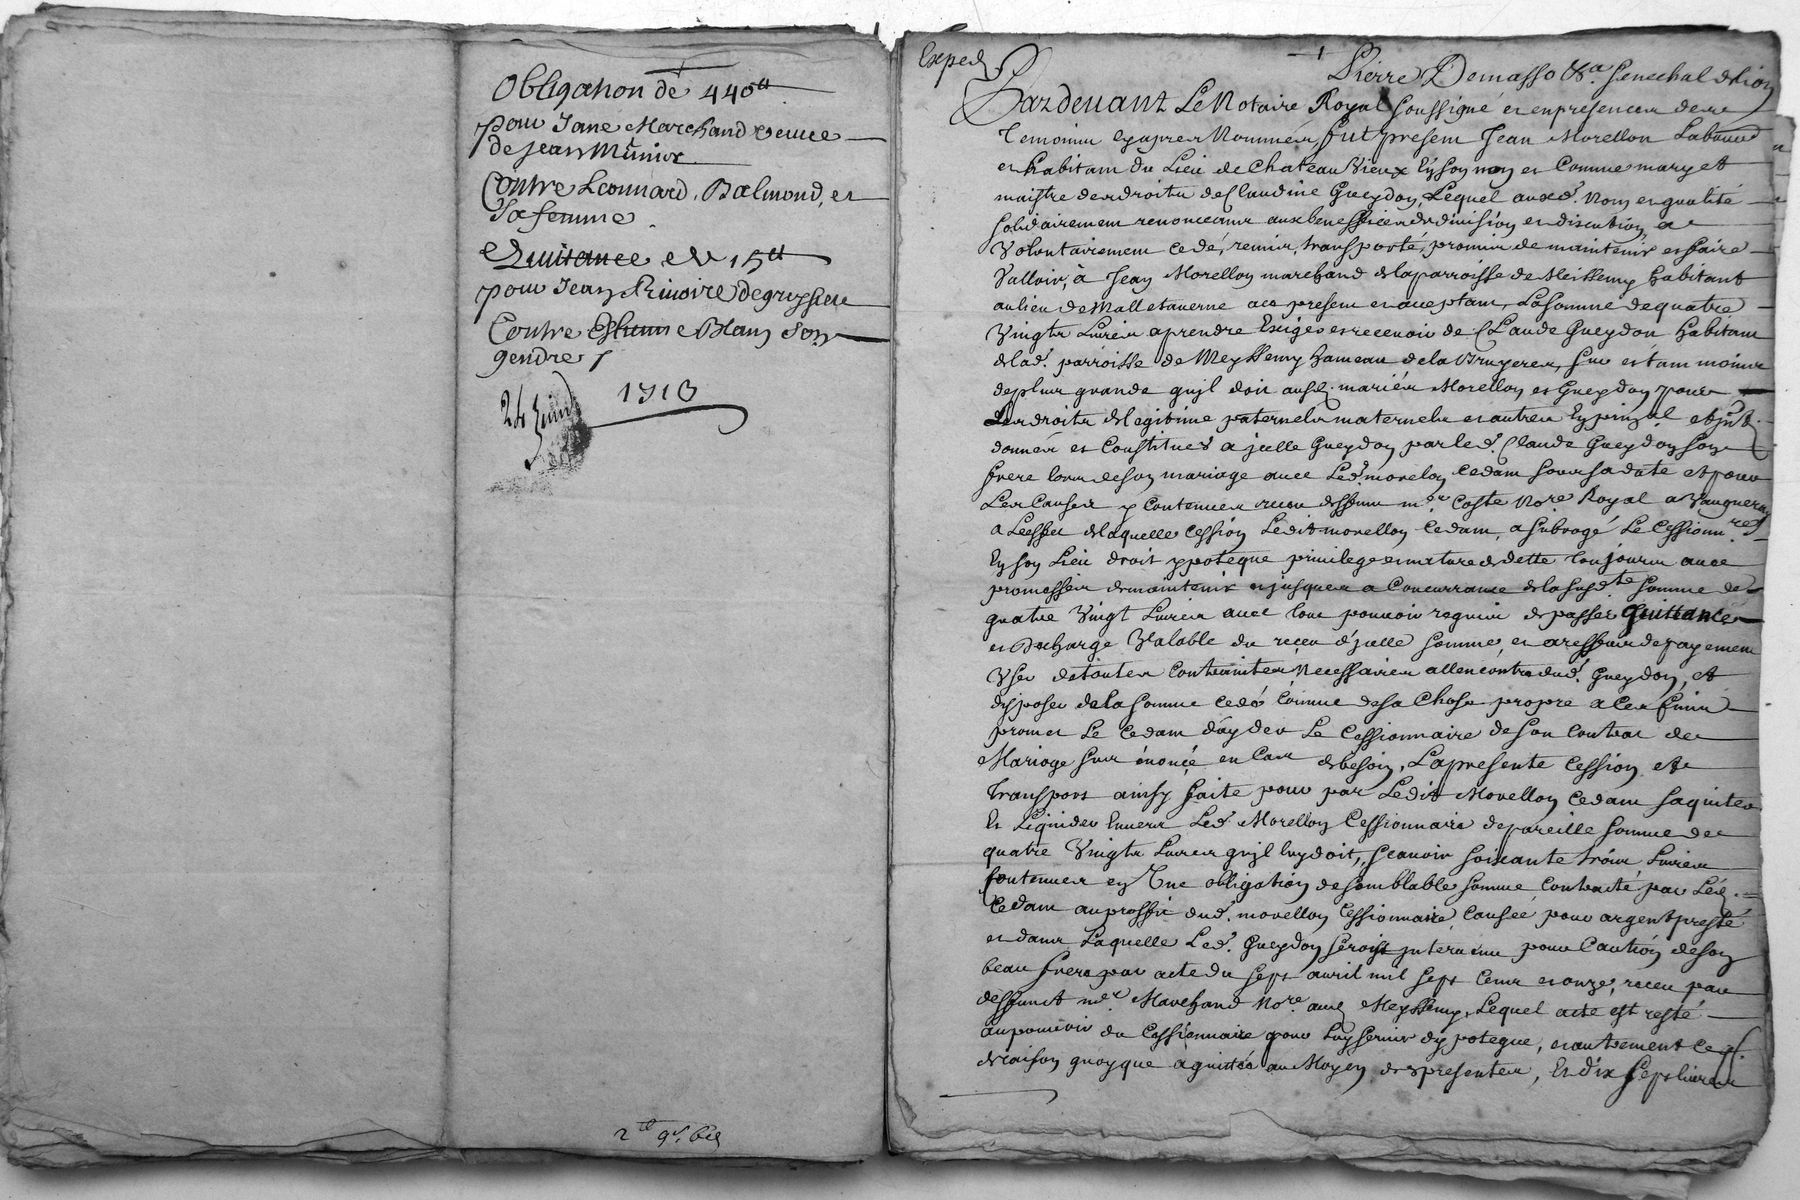 Obligation de 440ᵗᵗ
pour Jane Marchand veuve
de Jean Munier
Contre Leonnard Balmond, et
Sa femme
Quitance de 15ᵗᵗ
pour Jean Rivoire de
Contre Estienne Blanc son
gendre
24 Juin 1713
Exped
Pierre Demasso &ᵃ. Senechal de Lion
Pardevant Le Notaire Royal soussigné et en presence de
Temoins cy apres Nommés fut present Jean Morellon Laboureur
et habitant du Lieu de Chateau Vieux En son nom et Comme mary et
maistre des droits de Claudine Gueydon, Lequel auxd. Noms et qualité
solidairement renonceant aux benefices de division et discution, a
Volontairement cedé, remis, transporté, promis de maintenir et faire
Valloir, à Jean Morellon marchand de la parroisse de Meissemy habitant
au lieu de Malletaverne acy present et aceptant, La somme de quatre
Vingts Livres a prendre Exiger et recevoir de Claude Gueydon habitant
de lad. parroisse de Meyssemy hameau de la Bruyere, sur et tant moins
de plus grande qu'il doit ausd. mariés Morellon et Gueydon pour
Les droits de legitime paternels maternels et autres
donnés et Constitués a jcelle Gueydon par led. Claude Gueydon son
frere lors de son mariage avec Led. morelon cedant sous sa date et pour
Les Causes y contenues receu deffunt mᵉ. Coste Noʳᵉ Royal a Vaugneray
a Leffet de laquelle Cession Ledit morellon Cedant, a subrogé Le Cessionnʳᵉ
En son Lieu droit ypoteque privilege et nature de dette toujours avec
promesse de maintenir et jusques a Concurrance de la susdᵗᵉ somme de
quatre Vingt Livres avec tout pouvoir requis de passer Quittance
et Décharge Valable du receu d'jcelle somme, et a reffus de payement
User de toutes contraintes Necessaires allencontre dud. Gueydon, et
disposer de la somme cedé Comme de sa Chose propre a Ces fins
promet Le Cedant d'ayder Le Cessionnaire de son Contrat de
Mariage sus énoncé en Cas de besoin, La presente Cession et
transport ainsy faite pour par Ledit Morellon Cedant saquiter
Et Liquider Envers Led. Morellon Cessionnaire de pareille somme de
quatre Vingts Livres qu'il luy doit, scavoir soixante trois Livres
Contenues en Une obligation de semblable somme Contracté par Led.
Cedant au proffit dud. morellon Cessionnaire Causée pour argent presté
et dans Laquelle Led. Gueydon seroit jntervenu pour Caution de son
beau frere par acte du sept avril mil sept Cent et onze, receu par
deffunct mᵉ. Marchand Noʳᵉ aud. Meyssemy, Lequel acte est resté
au pouvoir du Cessionnaire pour Luy servir dypoteque, et autrement
de raison quoyque aquitée au Moyen des presentes, Et dix sept livres